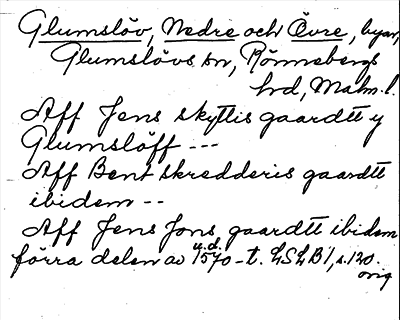 Glumslöv, Nedre och Övre, byar,
Glumslövs sn, Rönnebergs
hd, Malm. l.
Aff Jens skyttis gaardtt y
Glumslöff ---
Aff Bent skredderis gaardtt
ibidem --
Aff Jens Jons gaardtt ibidem
u.d.
förra delen av 1570-t. LSLB1, s. 120.
orig